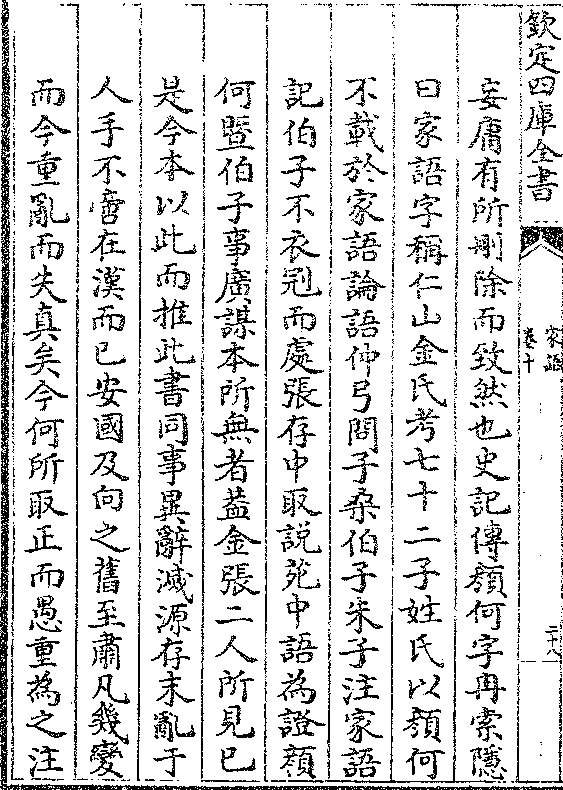 欽定四庫全書
家語
卷十
二十八
妄庸有所刪除而致然也史記傳顏何字冉索隱
曰家語字稱仁山金氏考七十二子姓氏以顏何
不載於家語論語仲弓問子桑伯子朱子注家語
記伯子不衣冠而處張存中取說苑中語為證顏
何暨伯子事廣謀本所無者葢金張二人所見已
是今本以此而推此書同事異辭滅源存末亂于
人手不啻在漢而已安國及向之舊至肅凡幾變
而今重亂而失真矣今何所取正而愚重為之注